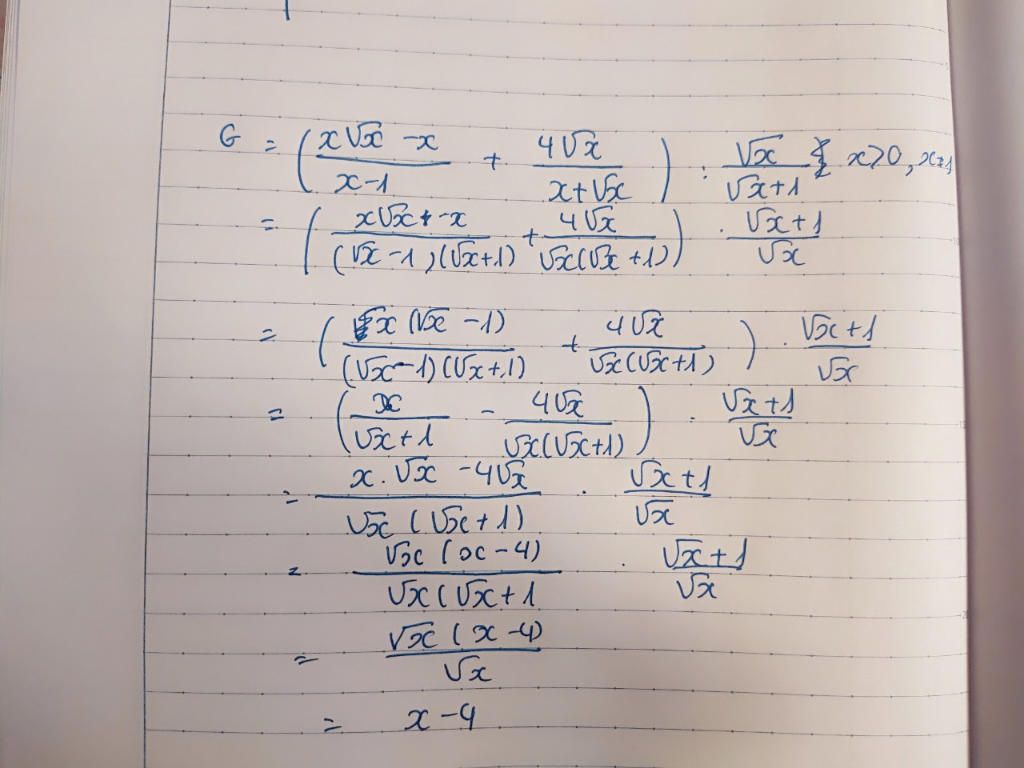 G = ( (x√x - x)/(x-1) + 4√x/(x+√x) ) : √x/(√x+1) x>0, x≠1
= ( (x√x - x)/((√x-1)(√x+1)) + 4√x/(√x(√x+1)) ) · (√x+1)/√x
= ( x(√x-1)/((√x-1)(√x+1)) + 4√x/(√x(√x+1)) ) · (√x+1)/√x
= ( x/(√x+1) - 4√x/(√x(√x+1)) ) · (√x+1)/√x
= (x.√x - 4√x)/(√x(√x+1)) · (√x+1)/√x
= √x(x-4)/(√x(√x+1 · (√x+1)/√x
= √x(x-4)/√x
= x-4